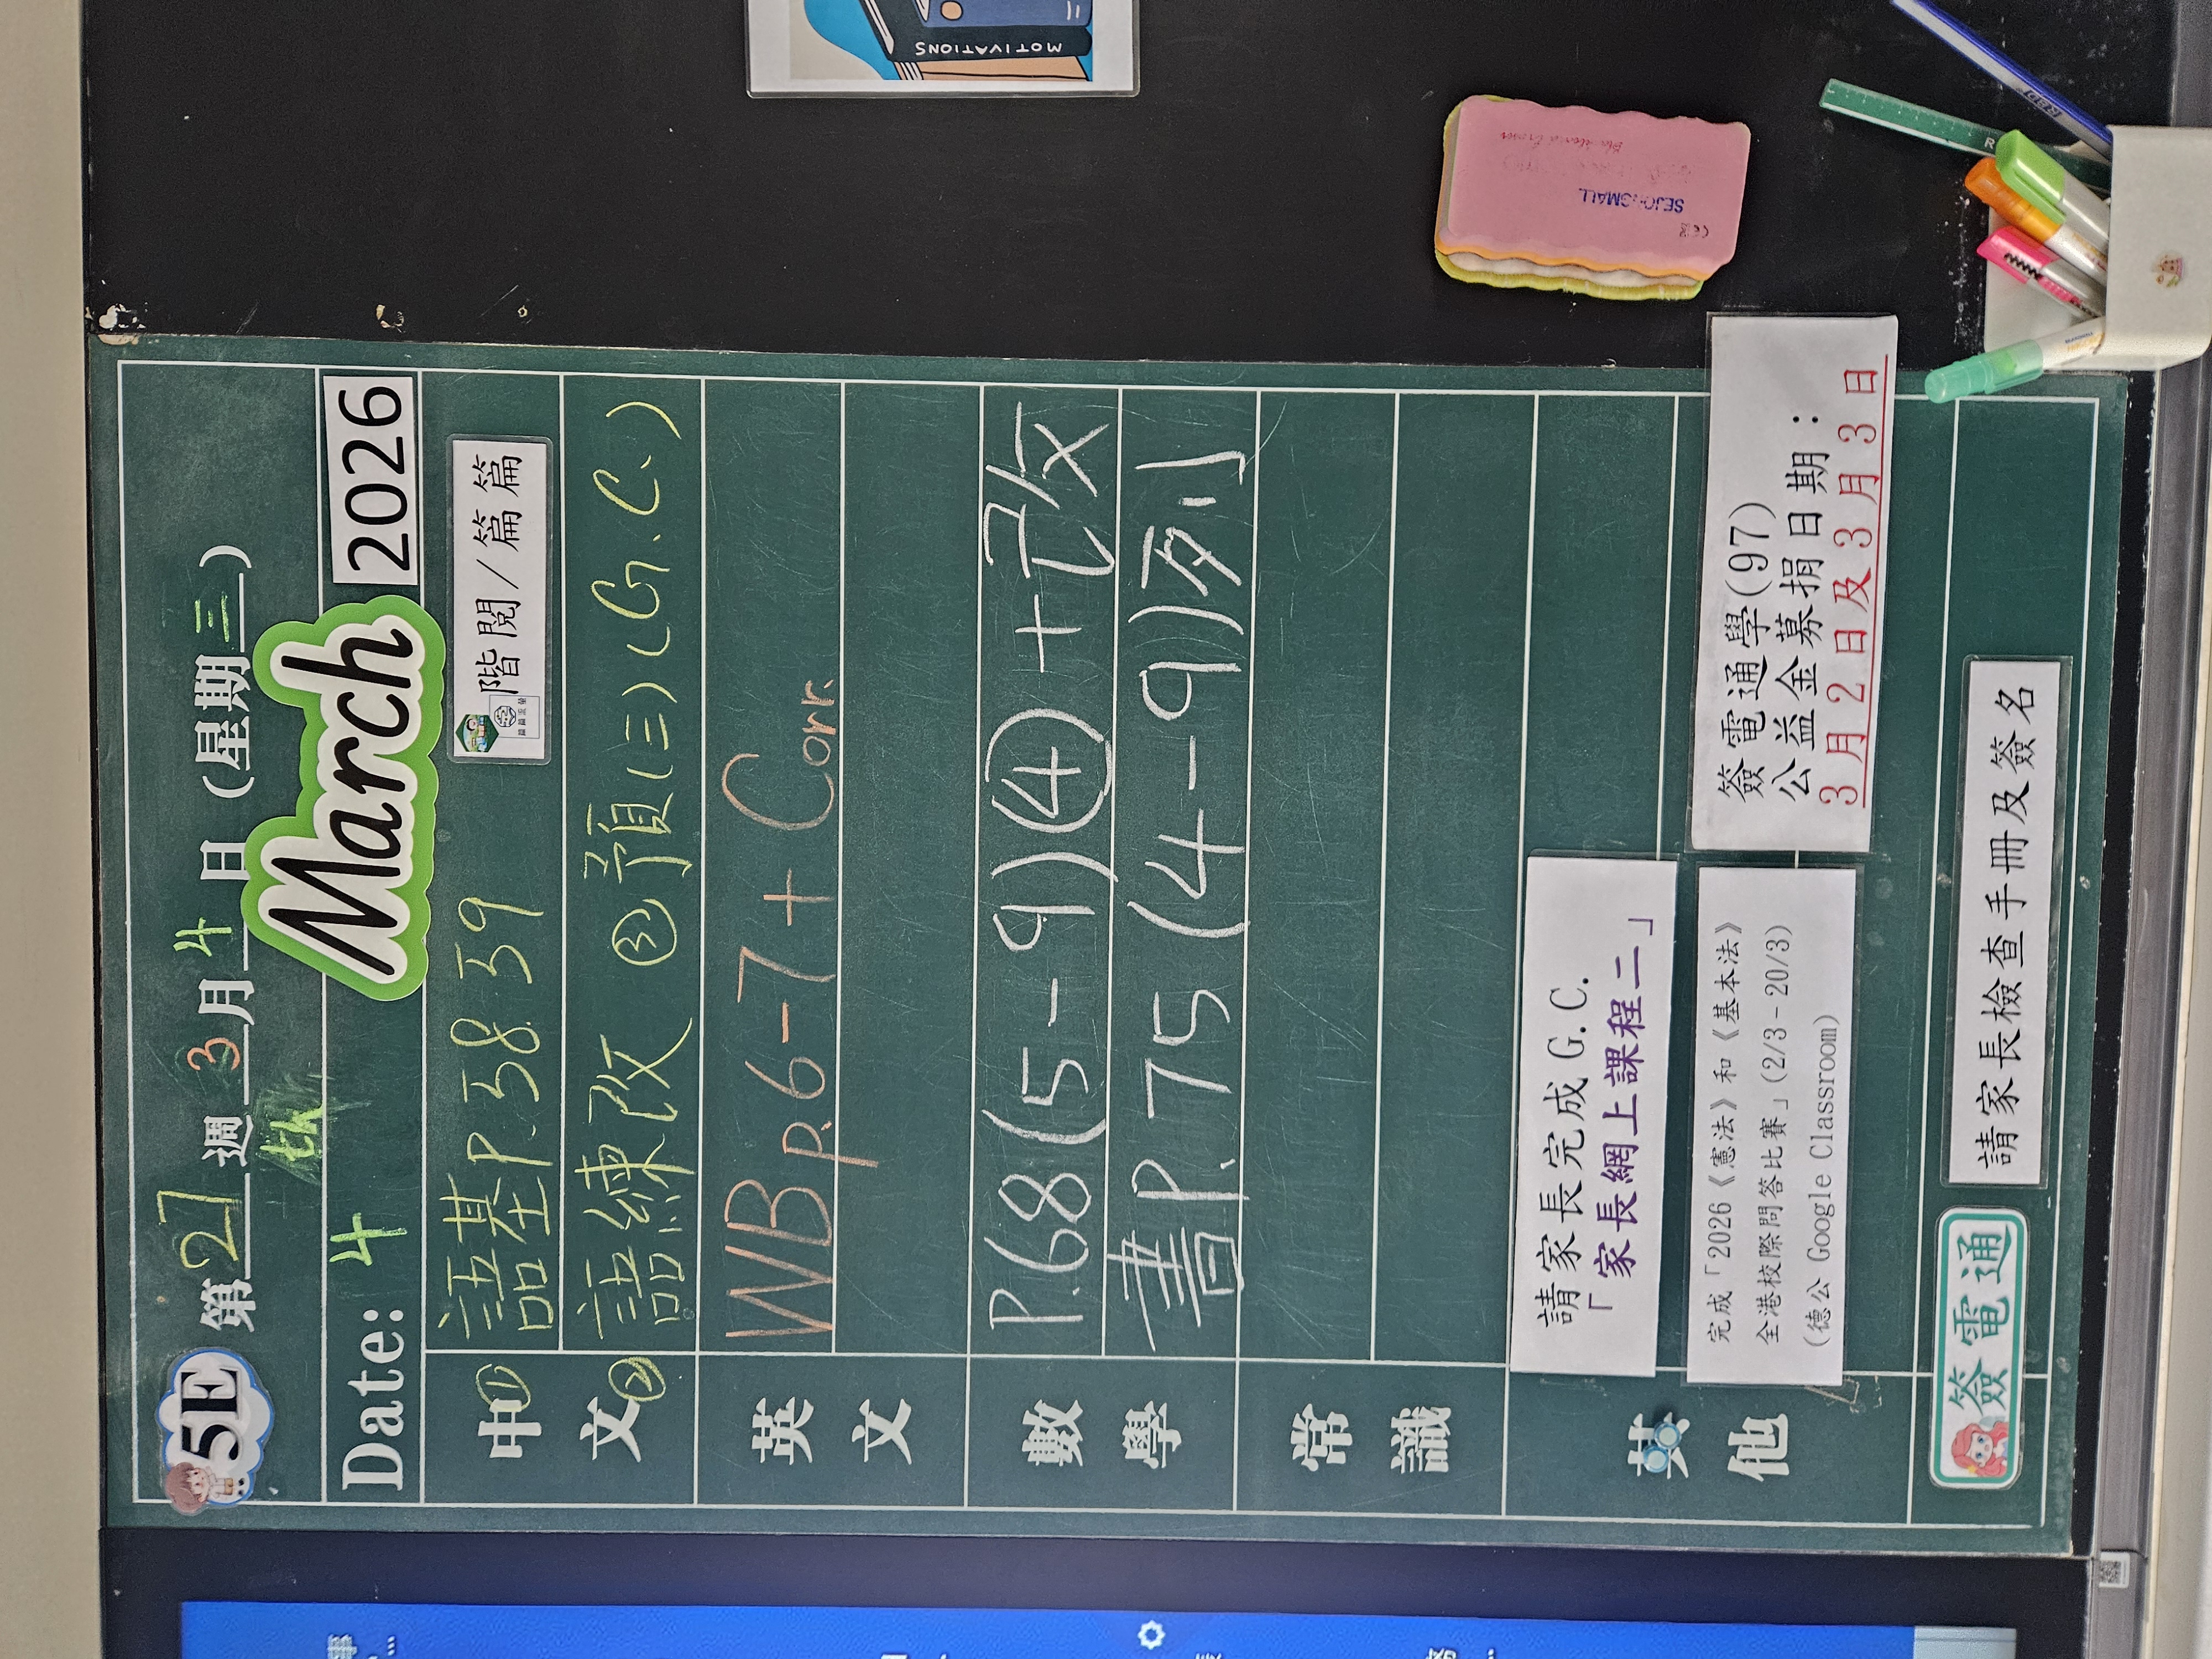 5E 第27週3月4日(星期三)
Date: 4 March 2026
中文
① 語基P.38.39 階閱/篇篇
② 語練改 ③預(三)(G.C.)
英文
WB p.6-7 + Corr.
數學
P.68(5-9)④+改
書P.75(4-9)列
常識
其他
請家長完成G.C.
「家長網上課程二」
完成「2026《憲法》和《基本法》
全港校際問答比賽」(2/3-20/3)
(德公 Google Classroom)
簽電通學(97)
公益金募捐日期：
3月2日及3月3日
簽電通
請家長檢查手冊及簽名
MOTIVATIONS
SEJONGMALL